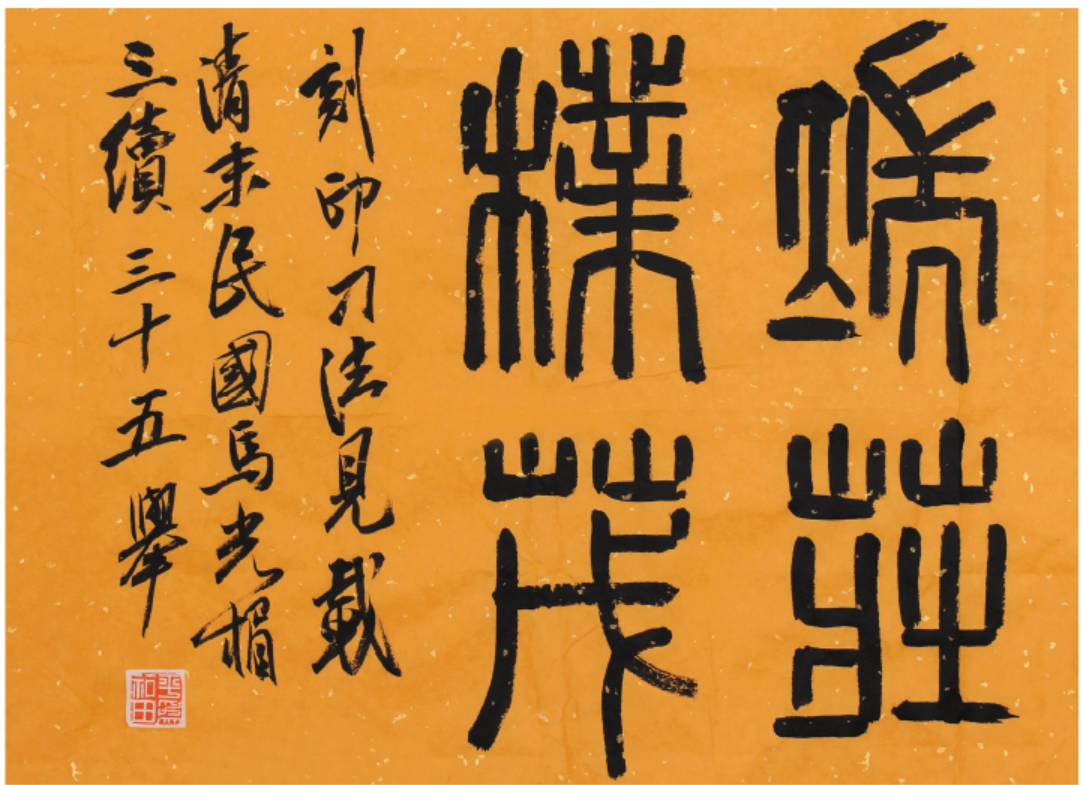 端莊
樸茂
刻印刀法見載
清末民國馬光楣
三續三十五舉